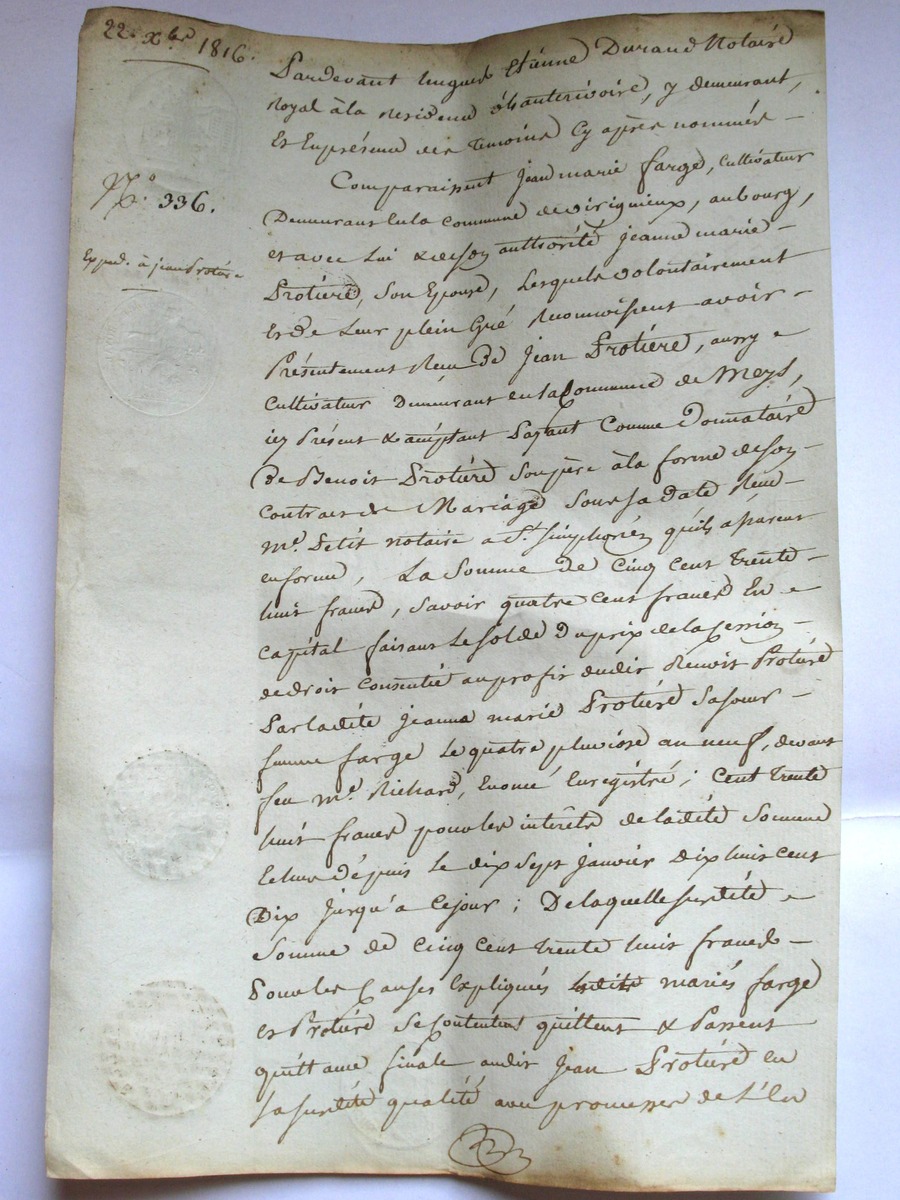 22. Xbre 1816.
N.o 336.
Exped. à jean Protière
Pardevant hugues Etienne Durand Notaire
royal à la Residence d'hauterivoire, y demeurant,
Et Enprésence des temoins Cy après nommés –
Comparaissent jean marie farge, cultivateur
Demeurant enla Commune de virigneux, aubourg,
et avec Lui & deson authorité jeanne marie –
Protière, son Epouse, Lesquels volontairement
Et de Leur plein Gré reconnoissent avoir –
Présentement Reçu De jean Protière, aussy
cultivateur Demeurant en la Commune de Meys,
icy Présent & acceptant Payant Comme Donnataire
De Benoit Protière son père à la forme deson –
Contrat de Mariage sous sa date Reçu –
me. Petit notaire a St. simphorien qu'ils aparent
enforme, La somme de Cinq cent trente –
huit francs, savoir quatre cent francs En
capital faisant Le solde Du prix de la cession –
de droit Consentie au profit dudit Benoit Protière
Par ladite jeanne marie Protière sa soeur –
femme farge Le quatre pluviose an neuf, devant
feu me. Richard, Enoncé Enregistré; Cent trente
huit francs pour les intérêts de ladite somme
Echus dépuis Le dix sept janvier Dix huit cent
Dix jusqu'a Cejour; De laquelle susdite
Somme de Cinq cent trente huit francs –
Pour les Causes Expliqués lesdits mariés farge
et Protière se contentent quittent & Passent
quittance finale audit jean Protière en
sa susdite qualité avec promesses de L'En